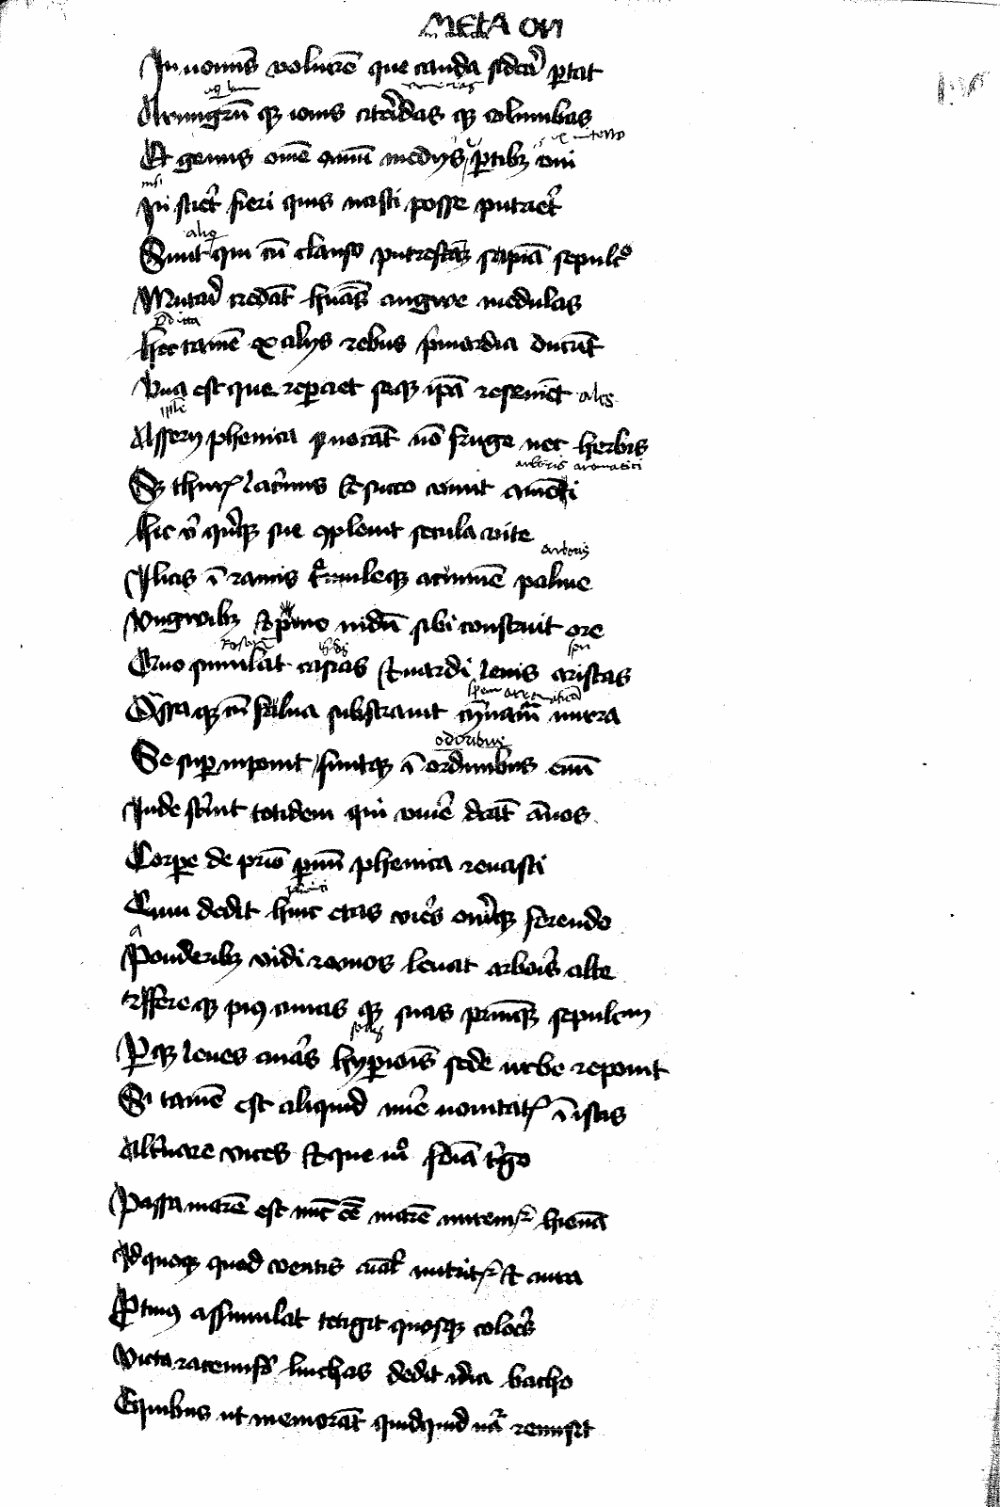 META OVI
Iunonis volucrem que cauda sidera portat
Armigerum que iovis citheridas que columbas
Et genus omne avium mediis partibus ovi
Ni sciret fieri quis nasci posse putaret
aliqui
Sunt qui cum clauso putrefacta spina sepulcro
Mutari credant humanas angue medulas
predicta
Hec tamen ex aliis rebus primordia ducunt
Una est que reparet seque ipsa reseminet ales
illi
Assery phenica vocant non fruge nec herbis
arboris aromatici
Sed thuris lacrimis et succo vivit amomi
Hec ubi quinque sue complevit secula vite
arboris
Ilicis in ramis tremuleque cacumine palme
Unguibus et puro nidum sibi construit ore
Quo simulat casias et nardi lenis aristas
speciem aromaticam
Quassaque cum fulva substravit cynnama mirra
odoribus
Se super inponit finitque in ordinibus evum
Inde ferunt totidem qui vivere debeat annos
Corpore de patrio parvum phenica renasci
phenici
Cum dedit huic etas vires onerique ferendo
Ponderibus nidi ramos levat arboris alte
Fertque pius cunas que suas patriumque sepulcrum
solis
Perque leves auras hyperionis sede urbe reponit
Si tamen est aliquid mire novitatis in istis
Alternare vices et que modo femina tergo
Passa marem est nunc esse marem miremur hienam
Id quoque quod ventis animal nutritur et aura
Protinus assimulat tetigit quoscumque colores
Victa racemifero linchas dedit india bacho
E quibus ut memorant quidquid vesica remisit